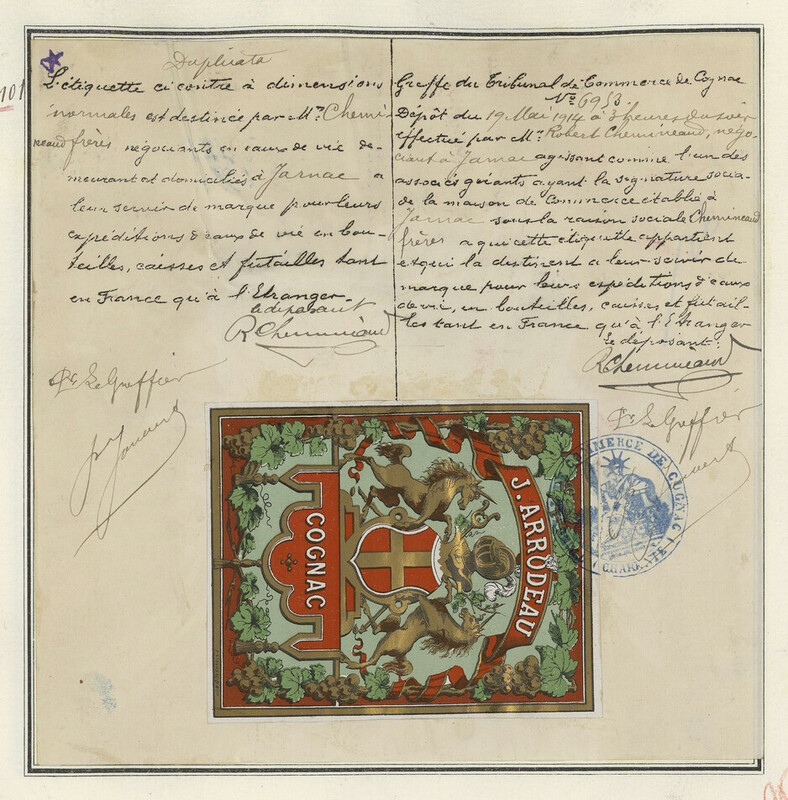 101
Duplicata
L'étiquette ci contre à dimensions
normales est destinée par Mrs Chemi-
neaud frères négociants en eaux de vie de-
meurant et domiciliés à Jarnac a
leur servir de marque pour leurs
expéditions d'eaux de vie en bou-
teilles, caisses et futailles tant
en France qu'à l'Etranger.
le déposant
RChemineaud
Pr Le Greffier
Greffe du Tribunal de Commerce de Cognac
No 6953.
Dépôt du 19 Mai 1914 à 3 heures du soir
effectué par Mr Robert Chemineaud, négo-
ciant à Jarnac agissant comme l'un des
associés gérants ayant la signature socia-
de la maison de Commerce établie à
Jarnac sous la raison sociale Chemineaud
frères a qui cette étiquette appartient
et qui la destinent a leur servir de
marque pour leurs expéditions d'eaux
de vie, en bouteilles, caisses et futail-
les tant en France qu'à l'Etranger
le déposant:
RChemineaud
Pr Le Greffier
J. ARRODEAU
COGNAC
COMMERCE DE COGNAC
CHARENTE